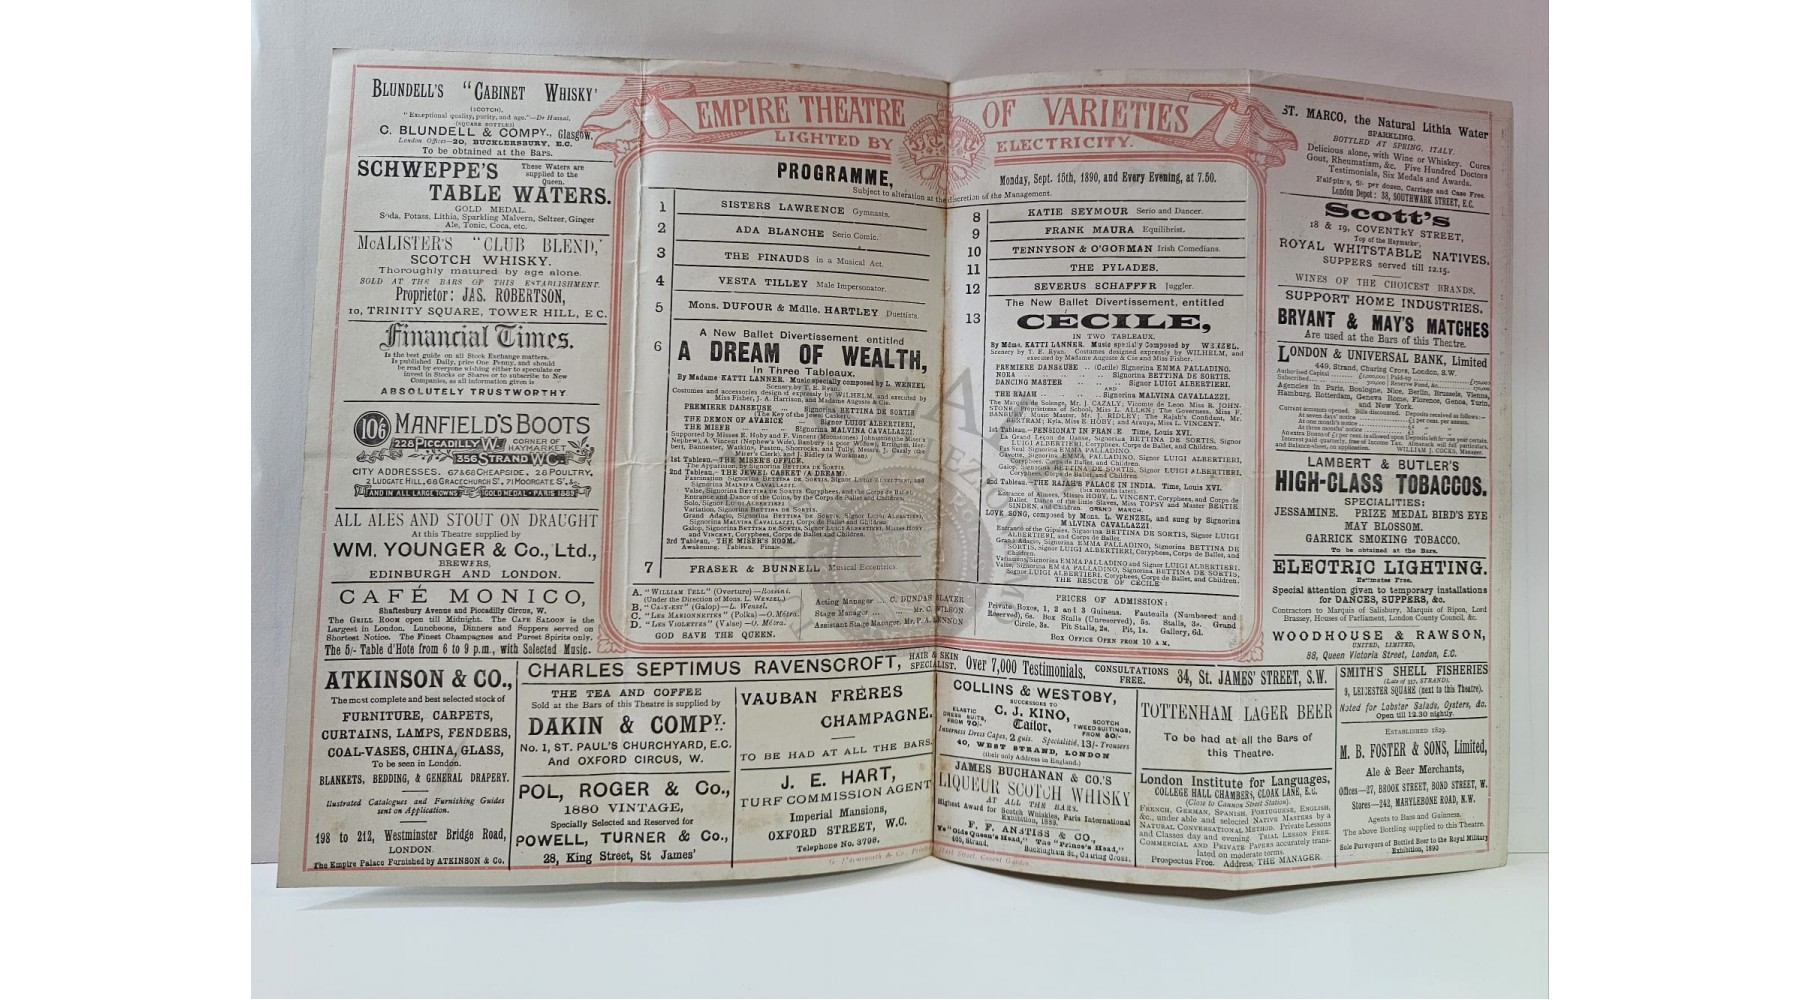 BLUNDELL'S "CABINET WHISKY'
(SCOTCH).
"Exceptional quality, purity, and age."—Dr Hassal,
(SQUARE BOTTLES)
C. BLUNDELL & COMPY., Glasgow.
London Offices—20, BUCKLERSBURY, E.C.
To be obtained at the Bars.
SCHWEPPE'S
These Waters are
supplied to the
Queen.
TABLE WATERS.
GOLD MEDAL.
Soda, Potass, Lithia, Sparkling Malvern, Seltzer, Ginger
Ale, Tonic, Coca, etc.
MCALISTER'S "CLUB BLEND,'
SCOTCH WHISKY.
Thoroughly matured by age alone.
SOLD AT THE BARS OF THIS ESTABLISHMENT.
Proprietor: JAS. ROBERTSON,
10, TRINITY SQUARE, TOWER HILL, E.C.
Financial Times.
Is the best guide on all Stock Exchange matters.
Is published Daily, price One Penny, and should
be read by everyone wishing either to speculate or
invest in Stocks or Shares or to subscribe to New
Companies, as all information given is
ABSOLUTELY TRUSTWORTHY
10/6 MANFIELD'S BOOTS
228 PICCADILLY W. CORNER OF HAYMARKET
356 STRAND W.C.
CITY ADDRESSES. 67 & 68 CHEAPSIDE. 28 POULTRY,
2 LUDGATE HILL, 68 GRACECHURCH ST, 71 MOORGATE ST. &c.
AND IN ALL LARGE TOWNS GOLD MEDAL · PARIS 1889
ALL ALES AND STOUT ON DRAUGHT
At this Theatre supplied by
WM. YOUNGER & Co., Ltd.,
BREWERS,
EDINBURGH AND LONDON.
CAFÉ MONICO,
Shaftesbury Avenue and Piccadilly Circus, W.
THE GRILL ROOM open till Midnight. THE CAFE SALOON is the
Largest in London. Luncheons, Dinners and Suppers served on
Shortest Notice. The Finest Champagnes and Purest Spirits only.
The 5/- Table d'Hote from 6 to 9 p.m., with Selected Music.
EMPIRE THEATRE OF VARIETIES
LIGHTED BY ELECTRICITY.
PROGRAMME,
Monday, Sept. 15th, 1890, and Every Evening, at 7.50.
Subject to alteration at the discretion of the Management.
1 SISTERS LAWRENCE Gymnasts.
2 ADA BLANCHE Serio Comic.
3 THE PINAUDS in a Musical Act.
4 VESTA TILLEY Male Impersonator.
5 Mons. DUFOUR & Mdlle. HARTLEY Duettists.
6
A New Ballet Divertissement entitled
A DREAM OF WEALTH,
In Three Tableaux.
By Madame KATTI LANNER. Music specially composed by L. WENZEL
Scenery by T. E. Ryan.
Costumes and accessories designed expressly by WILHELM, and executed by
Miss Fisher, J. A. Harrison, and Madame Auguste & Cie.
PREMIERE DANSEUSE .. Signorina BETTINA DE SORTIS
(The Key of the Jewel Casket).
THE DEMON OF AVARICE .. Signor LUIGI ALBERTIERI,
THE MISER .. Signorina MALVINA CAVALLAZZI.
1st Tableau.—THE MISER'S OFFICE.
The Apparition, by Signorina BETTINA DE SORTIS.
2nd Tableau.—THE JEWEL CASKET (A DREAM).
Fascination Signorina BETTINA DE SORTIS, Signor LUIGI ALBERTIERI, and
Signorina MALVINA CAVALLAZZI.
Valse, Signorina BETTINA DE SORTIS, Coryphees, and the Corps de Ballet.
Entrance and Dance of the Coins, by the Corps de Ballet and Children.
Solo, Signor LUIGI ALBERTIERI
Variation, Signorina BETTINA DE SORTIS.
Grand Adagio, Signorina BETTINA DE SORTIS, Signor LUIGI ALBERTIERI,
Signorina MALVINA CAVALLAZZI, Corps de Ballet and Children.
Galop, Signorina BETTINA DE SORTIS, Signor LUIGI ALBERTIERI, Misses HOBY
and VINCENT, Coryphees, Corps de Ballet and Children.
3rd Tableau.—THE MISER'S ROOM.
Awakening. Tableau. Finale.
7 FRASER & BUNNELL Musical Eccentrics.
A. "WILLIAM TELL" (Overture)—Rossini.
(Under the Direction of Mons. L. WENZEL.)
B. "CA-Y-EST" (Galop)—L. Wenzel.
C. "LES MARIONNETTES" (Polka)—O. Métra.
D. "LES VIOLETTES" (Valse)—O. Métra.
GOD SAVE THE QUEEN.
Acting Manager ... C. DUNDAS SLATER
Stage Manager ... Mr. C. WILSON
Assistant Stage Manager, Mr. P. A. LENNON
8 KATIE SEYMOUR Serio and Dancer.
9 FRANK MAURA Equilibrist.
10 TENNYSON & O'GORMAN Irish Comedians.
11 THE PYLADES.
12 SEVERUS SCHAFFR Juggler.
13
The New Ballet Divertissement, entitled
CÉCILE,
IN TWO TABLEAUX.
By Mdme. KATTI LANNER. Music specially Composed by WENZEL.
Scenery by T. E. Ryan. Costumes designed expressly by WILHELM, and
executed by Madame Auguste & Cie and Miss Fisher.
PREMIERE DANSEUSE .. (Cecile) Signorina EMMA PALLADINO.
NORA .. Signorina BETTINA DE SORTIS.
DANCING MASTER .. Signor LUIGI ALBERTIERI.
AND
THE RAJAH .. Signorina MALVINA CAVALLAZZI.
1st Tableau.—PENSIONAT IN FRANCE Time, Louis XVI.
La Grand Leçon de Danse, Signorina BETTINA DE SORTIS, Signor
LUIGI ALBERTIERI, Coryphees, Corps de Ballet, and Children.
Pas Seul Signorina EMMA PALLADINO.
2nd Tableau.—THE RAJAH'S PALACE IN INDIA. Time, Louis XVI.
(Six months later).
LOVE SONG, composed by Mons. L. WENZEL, and sung by Signorina
MALVINA CAVALLAZZI.
THE RESCUE OF CECILE
PRICES OF ADMISSION:
Private Boxes, 1, 2 and 3 Guineas. Fauteuils (Numbered and
Reserved), 6s. Box Stalls (Unreserved), 5s. Stalls, 3s. Grand
Circle, 3s. Pit Stalls, 2s. Pit, 1s. Gallery, 6d.
BOX OFFICE OPEN FROM 10 A.M.
ST. MARCO, the Natural Lithia Water
SPARKLING.
BOTTLED AT SPRING, ITALY.
Delicious alone, with Wine or Whiskey. Cures
Gout, Rheumatism, &c. Five Hundred Doctors
Testimonials, Six Medals and Awards.
Half-pints, 6/- per dozen, Carriage and Case Free.
London Depot: 38, SOUTHWARK STREET, E.C.
Scott's
18 & 19, COVENTRY STREET,
Top of the Haymarket,
ROYAL WHITSTABLE NATIVES.
SUPPERS served till 12.15.
WINES OF THE CHOICEST BRANDS.
SUPPORT HOME INDUSTRIES.
BRYANT & MAY'S MATCHES
Are used at the Bars of this Theatre.
LONDON & UNIVERSAL BANK, Limited
449, Strand, Charing Cross, London, S.W.
Agencies in Paris, Boulogne, Nice, Berlin, Brussels, Vienna,
Hamburg, Rotterdam, Geneva Rome, Florence, Genoa, Turin,
and New York.
Current accounts opened. Bills discounted. Deposits received as follows:—
WILLIAM J. COCKS, Manager.
LAMBERT & BUTLER'S
HIGH-CLASS TOBACCOS.
SPECIALITIES:
JESSAMINE. PRIZE MEDAL BIRD'S EYE
MAY BLOSSOM.
GARRICK SMOKING TOBACCO.
To be obtained at the Bars.
ELECTRIC LIGHTING.
Estimates Free.
Special attention given to temporary installations
for DANCES, SUPPERS, &c.
Contractors to Marquis of Salisbury, Marquis of Ripon, Lord
Brassey, Houses of Parliament, London County Council, &c.
WOODHOUSE & RAWSON,
UNITED, LIMITED,
88, Queen Victoria Street, London, E.C.
CHARLES SEPTIMUS RAVENSCROFT, HAIR & SKIN SPECIALIST. Over 7,000 Testimonials. CONSULTATIONS FREE. 34, St. JAMES' STREET, S.W.
ATKINSON & CO.,
The most complete and best selected stock of
FURNITURE, CARPETS,
CURTAINS, LAMPS, FENDERS,
COAL-VASES, CHINA, GLASS,
To be seen in London.
BLANKETS, BEDDING, & GENERAL DRAPERY.
Illustrated Catalogues and Furnishing Guides
sent on Application.
198 to 212, Westminster Bridge Road,
LONDON.
The Empire Palace Furnished by ATKINSON & Co.
THE TEA AND COFFEE
Sold at the Bars of this Theatre is supplied by
DAKIN & COMPY.
No. 1, ST. PAUL'S CHURCHYARD, E.C.
And OXFORD CIRCUS, W.
POL, ROGER & Co.,
1880 VINTAGE,
Specially Selected and Reserved for
POWELL, TURNER & Co.,
28, King Street, St James'
VAUBAN FRÈRES
CHAMPAGNE.
TO BE HAD AT ALL THE BARS.
J. E. HART,
TURF COMMISSION AGENT
Imperial Mansions,
OXFORD STREET, W.C.
Telephone No. 3796.
COLLINS & WESTOBY,
SUCCESSORS TO
C. J. KINO,
Tailor,
ELASTIC DRESS SUITS, FROM 70/-
SCOTCH TWEED SUITINGS, FROM 50/-
Inverness Dress Capes, 2 guis. Specialitié, 13/- Trousers
40, WEST STRAND, LONDON
(their only Address in England.)
JAMES BUCHANAN & CO.'S
LIQUEUR SCOTCH WHISKY
AT ALL THE BARS.
Highest Award for Scotch Whiskies, Paris International
Exhibition, 1889.
F. F. ANSTISS & CO,
Ye "Olde Queen's Head," The "Prince's Head,"
405, Strand. Buckingham St., Charing Cross.
TOTTENHAM LAGER BEER
To be had at all the Bars of
this Theatre.
London Institute for Languages,
COLLEGE HALL CHAMBERS, CLOAK LANE, E.C.
(Close to Cannon Street Station).
FRENCH, GERMAN, SPANISH, PORTUGUESE, ENGLISH,
&c., under able and selected Native Masters by a
NATURAL CONVERSATIONAL METHOD. Private Lessons
and Classes day and evening. TRIAL LESSON FREE.
COMMERCIAL and PRIVATE PAPERS accurately trans-
lated on moderate terms.
Prospectus Free. Address, THE MANAGER.
SMITH'S SHELL FISHERIES
(Late of 357, STRAND).
9, LEICESTER SQUARE (next to this Theatre).
Noted for Lobster Salads, Oysters, &c.
Open till 12.30 nightly.
ESTABLISHED 1829.
M. B. FOSTER & SONS, Limited,
Ale & Beer Merchants,
Offices—27, BROOK STREET, BOND STREET, W.
Stores—242, MARYLEBONE ROAD, N.W.
Agents to Bass and Guinness.
The above Bottling supplied to this Theatre.
Sole Purveyors of Bottled Beer to the Royal Military
Exhibition, 1890